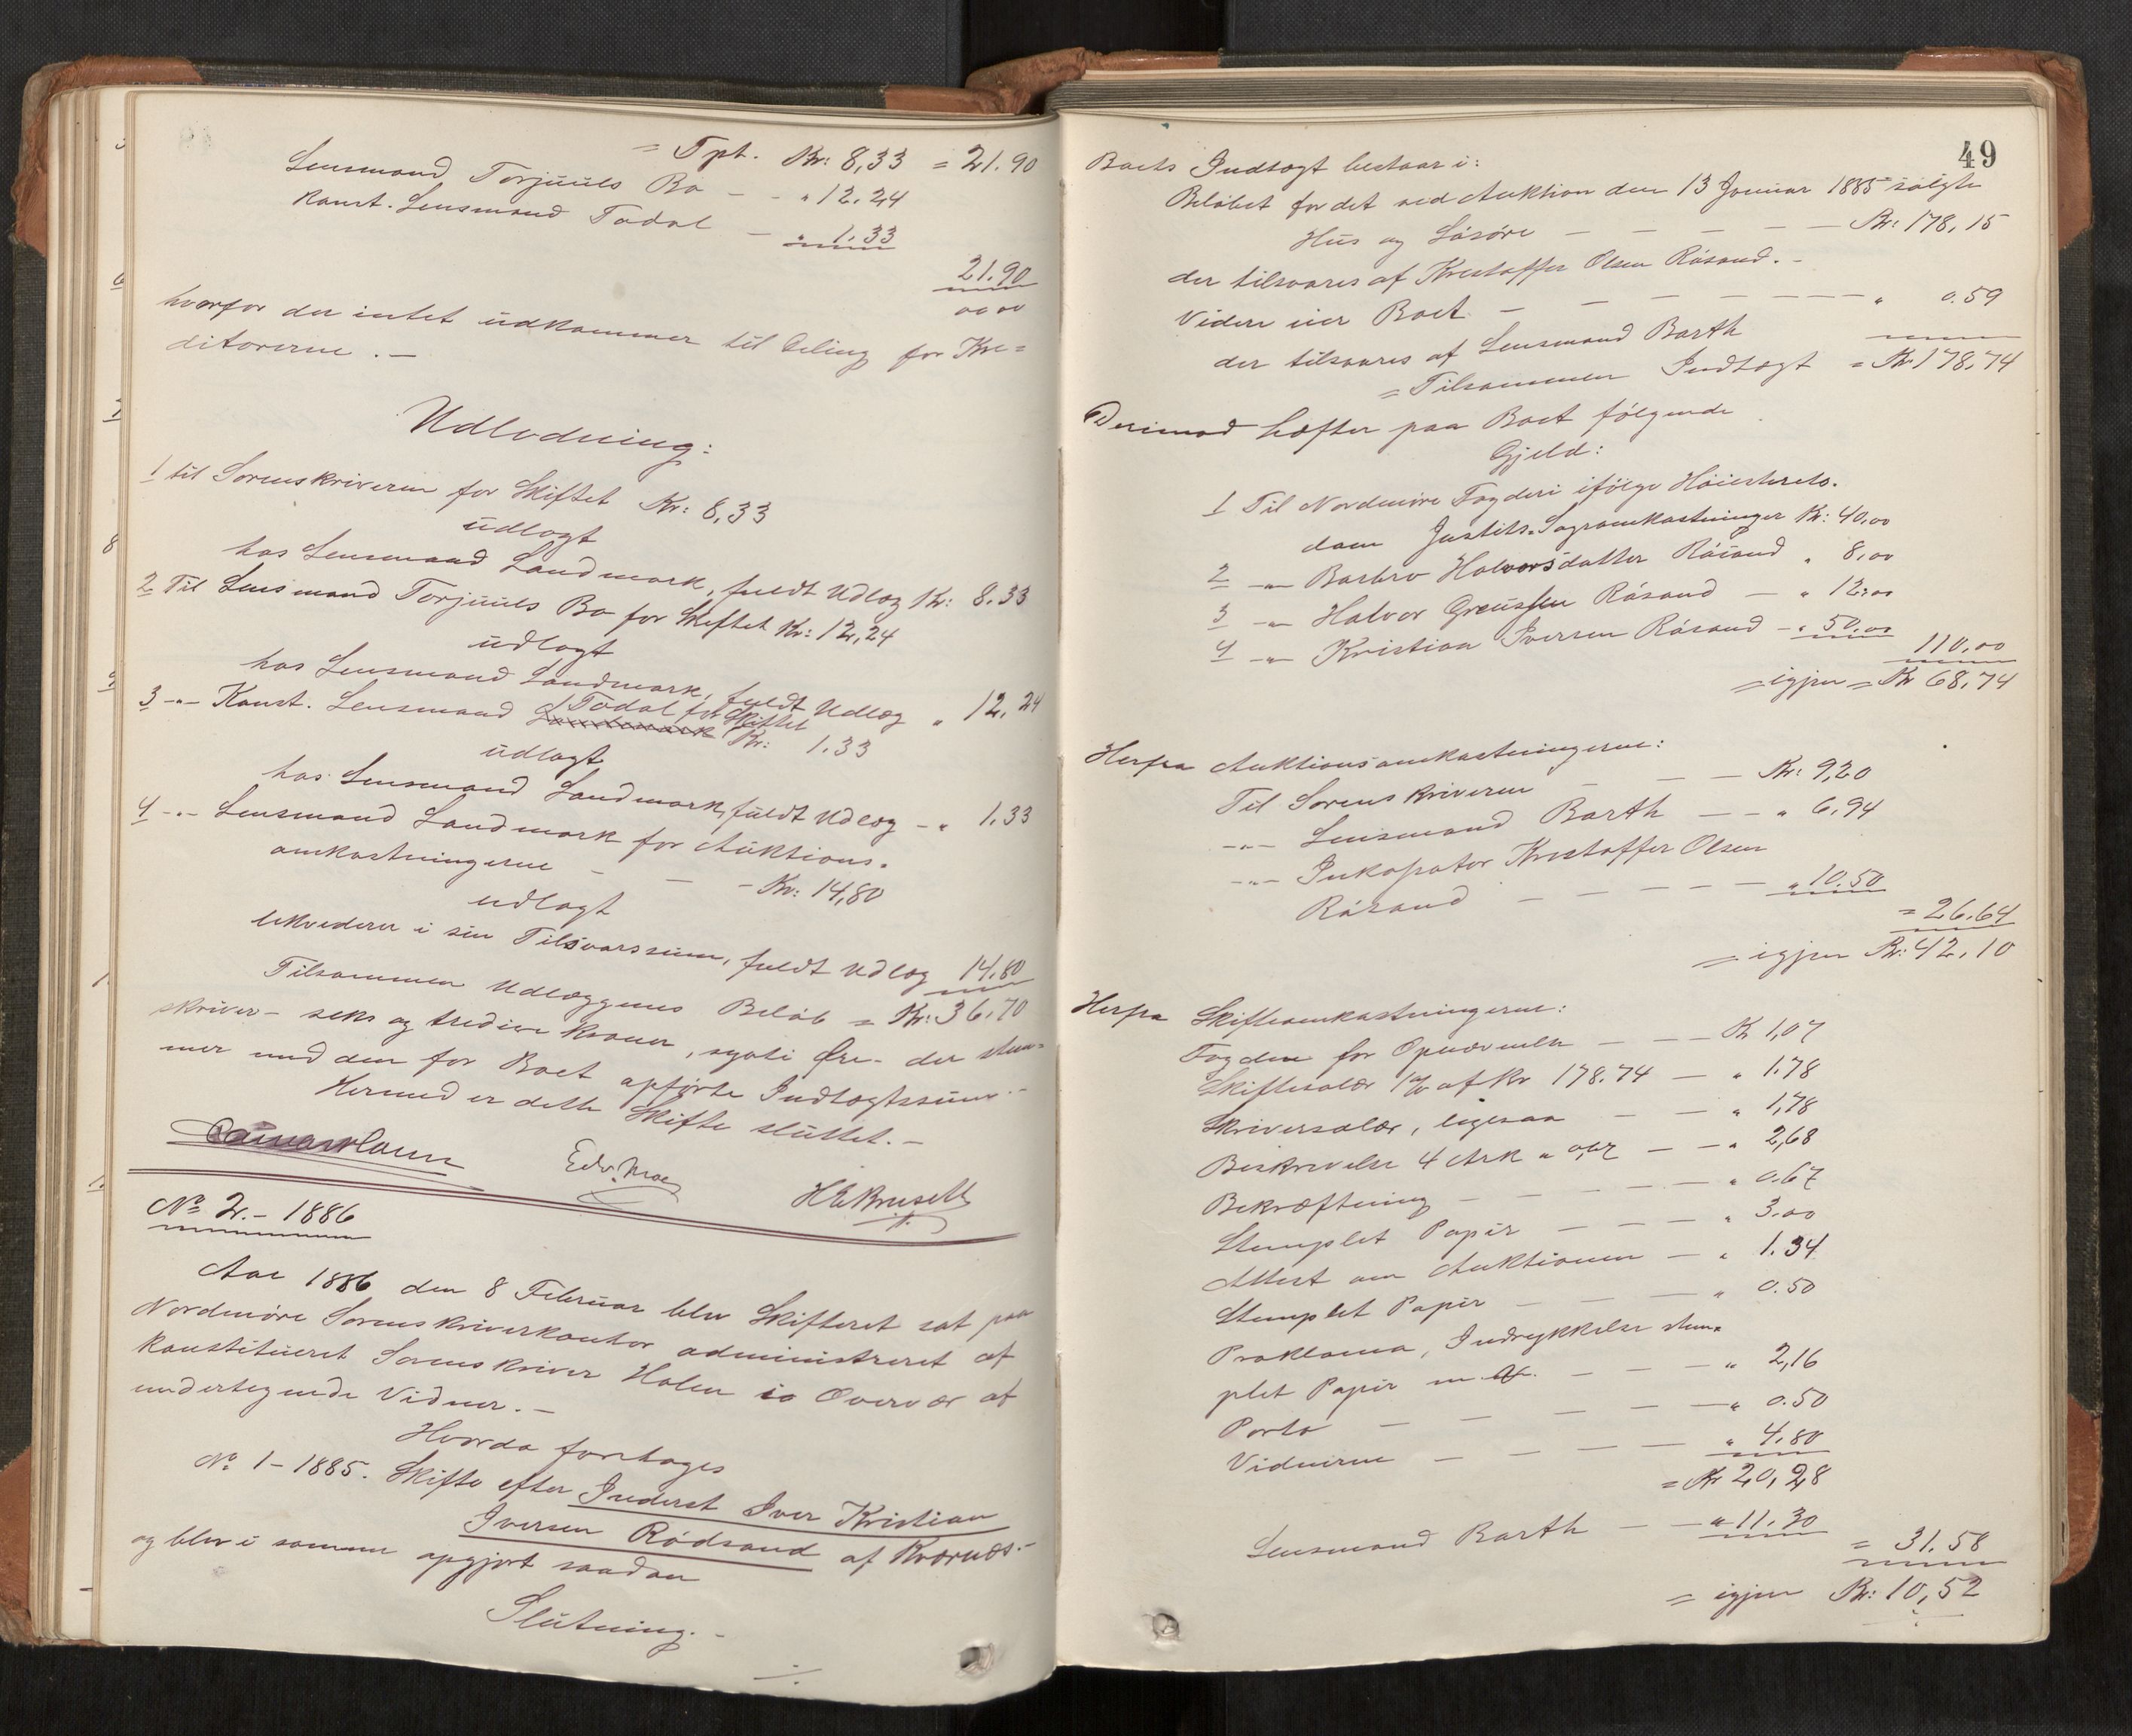 = Tpt. Kr: 8,33 = 21.90
Lensmand Torjuuls Bo - - „ 12.24
Konst. Lensmand Todal - „ 1.33
21.90
00 00
hvorfor der intet udkommer til Deling for Kre=
ditorerne. -
Udlodning:
1 til Sorenskriveren for Skiftet Kr: 8,33
udlagt
hos Lensmand Landmark, fuldt Udlæg Kr: 8.33
2 Til Lensmand Torjuuls Bo for Skiftet Kr: 12,24
udlagt
hos Lensmand Landmark, fuldt Udlæg „ 12.24
3 -„- Konst. Lensmand Todal for Skiftet
Kr: 1.33
udlagt
hos Lensmand Landmark, fuldt Udlæg - „ 1.33
4 -„- Lensmand Landmark for Auktions-
omkostningerne - - - Kr: 14,80
udlagt
likvederer i sin Tilsvarssum, fuldt Udlæg 14.80
Tilsammen Udlæggenes Beløb = Kr: 36.70
skriver - seks og tredive kroner, sytti Øre - der stem=
mer med den for Boet opførte Indtægtssum. -
Hermed er dette Skifte sluttet. -
Edv. Moe
H E Kruseth
No 2. - 1886
Aar 1886 den 8 Februar blev Skifteret sat paa
Nordmøre Sorenskriverkontor administreret af
konstitueret Sorenskriver Holen i Overvær af
undertegnede Vidner. -
Hvorda foretoges
No 1 - 1885. Skifte efter Inderst Iver Kristian
Iversen Rødsand af Kvernæs. -
og blev i samme opgjort saadan
Slutning. -
./.
49
Boets Indtægt bestaar i:
Beløbet for det ved Auktion den 13 Januar 1885 solgte
Hus og Løsøre - - - - - Kr: 178,15
der tilsvares af Kristoffer Olsen Råsand. -
Videre eier Boet - - - - - - - „ 0.59
der tilsvares af Lensmand Barth
= Tilsammen Indtægt = Kr 178,74
Derimod hefter paa Boet følgende
Gjeld:
1 Til Nordmøre Fogderi ifølge Høiesterets-
dom Justits-Sagsomkostninger Kr: 40,00
2 -„- Barbro Halvorsdatter Råsand „ 8,00
3 -„- Halvor Greussen Råsand - „ 12,00
4 -„- Kristian Iversen Råsand - „ 50,00
110,00
= igjen = Kr 68,74
Herfra Auktionsomkostningerne:
Til Sorenskriveren - - - Kr: 9,20
-„- Lensmand Barth - - „ 6,94
-„- Inkasator Kristoffer Olsen
Råsand - - - - - „ 10.50
= 26.64
= igjen Kr: 42.10
Herfra Skifteomkostningerne:
Fogden for Opnævnelse - - - Kr 1,07
Skiftesalær 1 % af Kr 178.74 - „ 1.78
Skriversalær, ligesaa - - „ 1,78
Beskrivelse 4 Ark a 0,67 - - „ 2,68
Bekræftning - - - - - „ 0.67
Stemplet Papir - - - - „ 3.00
Attest om Auktionen - „ 1.34
Stemplet Papir - - - „ 0.50
Proklama, Indrykkelse stem=
plet Papir m. v. - - - „ 2,16
Porto - - - - - - „ 0.50
Vidnerne - - - - „ 4.80
= Kr 20,28
Lensmand Barth - - „ 11.30
= 31.58
= igjen Kr: 10,52